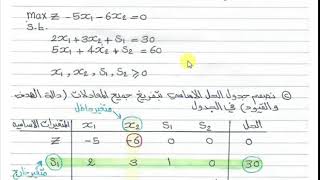 max Z - 5x₁ - 6x₂ = 0
S.t.
2x₁ + 3x₂ + S₁ = 30
5x₁ + 4x₂ + S₂ = 60
x₁, x₂, S₁, S₂ ≥ 0
نصمم جدول الحل الأساسي بتفريغ جميع المعادلات (دالة الهدف
والقيود) في الجدول
متغير داخل
المتغيرات الأساسية x₁ x₂ S₁ S₂ الحل
Z -5 -6 0 0 0
S₁ 2 3 1 0 30
متغير خارج